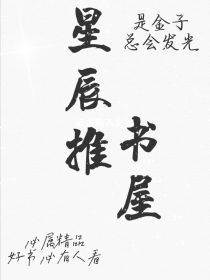 是金子
总会发光
星辰推
书屋
必属精品
好书必有人看